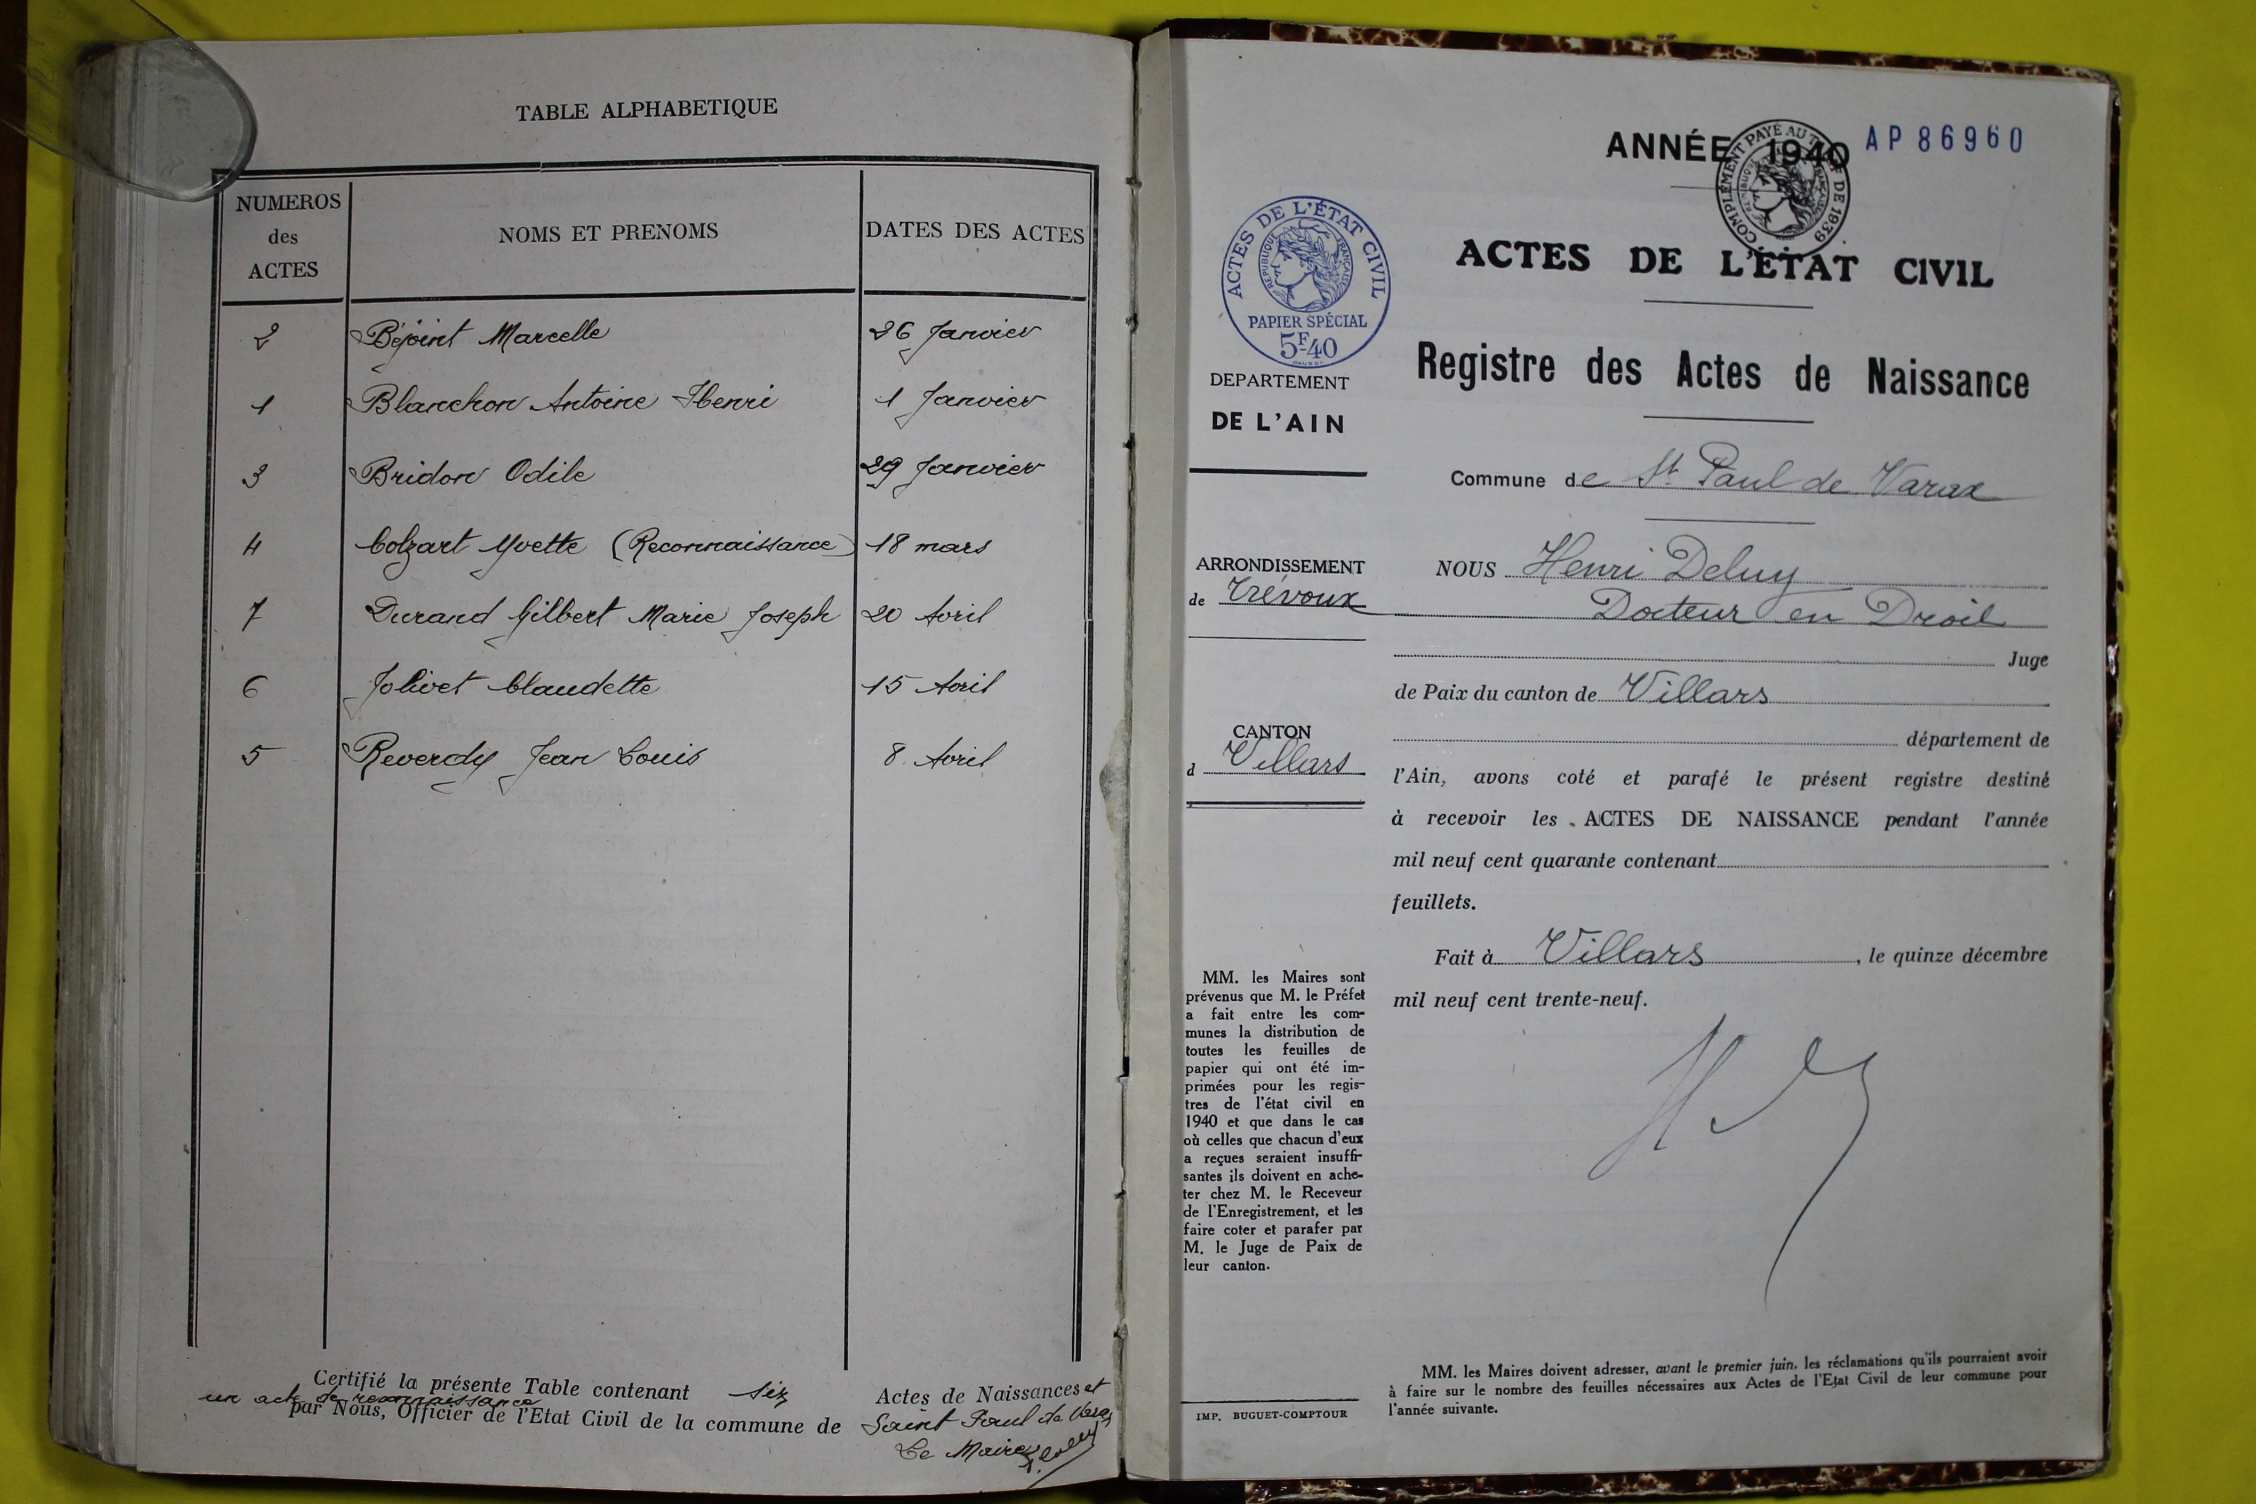 TABLE ALPHABETIQUE
NUMEROS
des
ACTES
NOMS ET PRENOMS
DATES DES ACTES
2 Béjoint Marcelle 26 Janvier
1 Blanchon Antoine Henri 1 Janvier
3 Bridon Odile 29 Janvier
4 Colzart Yvette (Reconnaissance) 18 mars
7 Durand Gilbert Marie Joseph 20 Avril
6 Jolivet Claudette 15 Avril
5 Reverdy Jean Louis 8 Avril
Certifié la présente Table contenant six Actes de Naissances et
un acte de reconnaissance
par Nous, Officier de l'Etat Civil de la commune de Saint Paul de Varax
Le Maire
ANNÉE 1940
AP 86960
COMPLÉMENT PAYÉ AU TARIF DE 1939
ACTES DE L'ÉTAT CIVIL
RÉPUBLIQUE FRANÇAISE
PAPIER SPÉCIAL
5F40
ACTES DE L'ÉTAT CIVIL
Registre des Actes de Naissance
DEPARTEMENT
DE L'AIN
Commune de St Paul de Varax
ARRONDISSEMENT
de Trévoux
NOUS Henri Deluy
Docteur en Droit
Juge
de Paix du canton de Villars
CANTON
d Villars
département de
l'Ain, avons coté et parafé le présent registre destiné
à recevoir les ACTES DE NAISSANCE pendant l'année
mil neuf cent quarante contenant
feuillets.
Fait à Villars, le quinze décembre
mil neuf cent trente-neuf.
MM. les Maires sont
prévenus que M. le Préfet
a fait entre les com-
munes la distribution de
toutes les feuilles de
papier qui ont été im-
primées pour les regis-
tres de l'état civil en
1940 et que dans le cas
où celles que chacun d'eux
a reçues seraient insuffi-
santes ils doivent en ache-
ter chez M. le Receveur
de l'Enregistrement, et les
faire coter et parafer par
M. le Juge de Paix de
leur canton.
IMP. BUGUET-COMPTOUR
MM. les Maires doivent adresser, avant le premier juin, les réclamations qu'ils pourraient avoir
à faire sur le nombre des feuilles nécessaires aux Actes de l'Etat Civil de leur commune pour
l'année suivante.